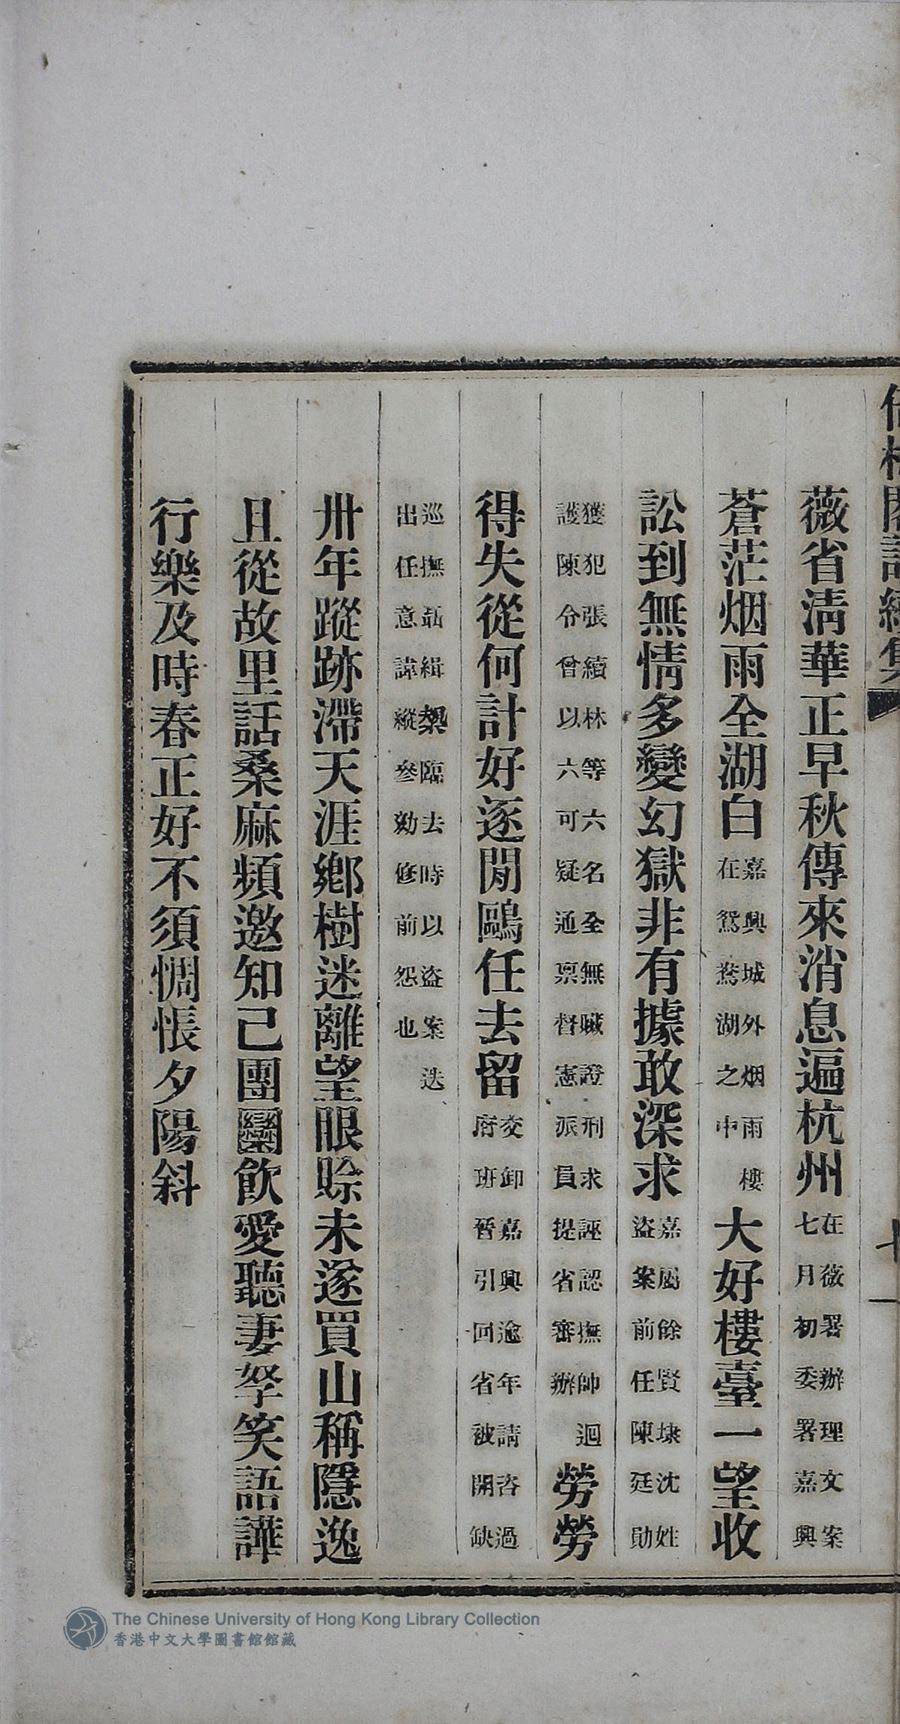 薇省淸華正早秋傳來消息遍杭州在薇署辦理文案七月初委署嘉興
蒼茫烟雨全湖白嘉興城外烟雨樓在鴛鴦湖之中大好樓臺一望收
訟到無情多變幻獄非有據敢深求嘉屬餘賢埭沈姓盜案前任陳廷勛
獲犯張續林等六名全無贓證刑求誣認撫帥迴護陳令曾以六可疑通禀督憲派員提省審辦勞勞
得失從何計好逐閒鷗任去留交卸嘉興逾年請咨過府班晉引回省被開缺
巡撫聶緝槼臨去時以盜案迭出任意諱縱叅劾修前怨也
卅年蹤跡滯天涯鄉樹迷離望眼賒未遂買山稱隱逸
且從故里話桑麻頻邀知己團圞飲愛聽妻孥笑語譁
行樂及時春正好不須惆悵夕陽斜
The Chinese University of Hong Kong Library Collection
香港中文大學圖書館館藏